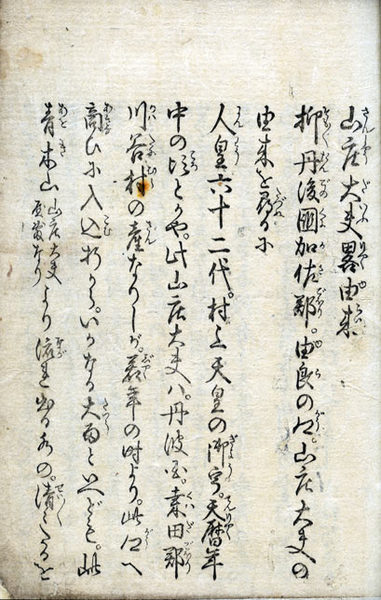 山庄大夫畧由来
抑丹後國加佐郡。由良の郷。山庄大夫の
由来を尋るに
人皇六十二代。村上天皇の御宇。天暦年
中の頃とかや。此山庄大夫ハ。丹波国。桑田郡
川谷村の産なりしが。若年の時より。此郷へ
商ひに入込折から。いかなる大雨と云ども。此
青木山 山庄大夫屋敷なり より流れ出る水の。